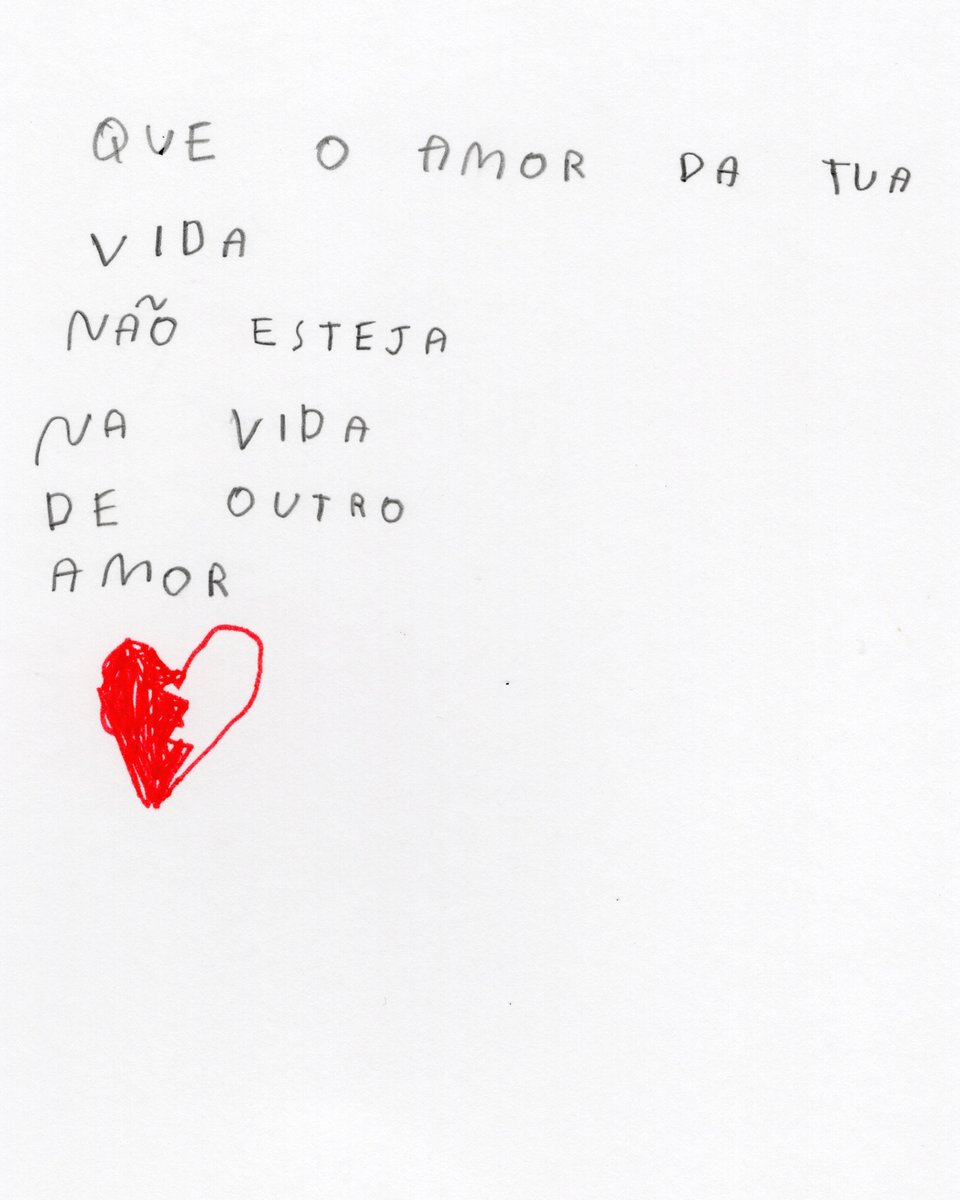 QUE O AMOR DA TUA
VIDA
NÃO ESTEJA
NA VIDA
DE OUTRO
AMOR